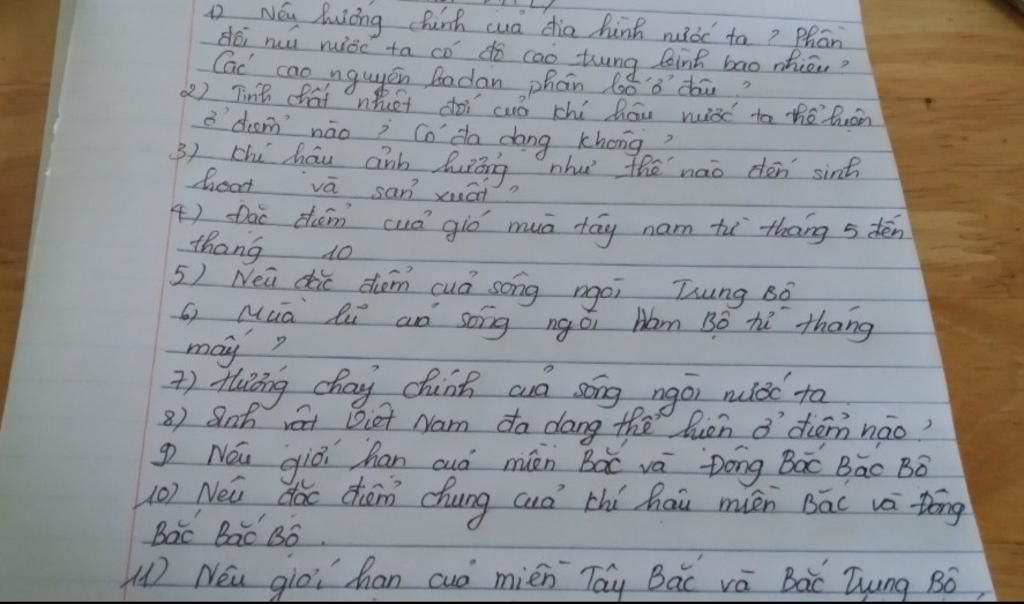 1) Nêu hướng chính của địa hình nước ta? Phần
đồi núi nước ta có độ cao trung bình bao nhiêu?
Các cao nguyên badan phân bố ở đâu?
2) Tính chất nhiệt đới của khí hậu nước ta thể hiện
ở điểm nào? Có đa dạng không?
3) Khí hậu ảnh hưởng như thế nào đến sinh
hoạt và sản xuất?
4) Đặc điểm của gió mùa tây nam từ tháng 5 đến
tháng 10
5) Nêu đặc điểm của sông ngòi Trung Bộ
6) Mùa lũ của sông ngòi Nam Bộ từ tháng
mấy?
7) Hướng chảy chính của sông ngòi nước ta
8) Sinh vật Việt Nam đa dạng thể hiện ở điểm nào?
9) Nêu giới hạn của miền Bắc và Đông Bắc Bắc Bộ
10) Nêu đặc điểm chung của khí hậu miền Bắc và Đông
Bắc Bắc Bộ.
11) Nêu giới hạn của miền Tây Bắc và Bắc Trung Bộ.